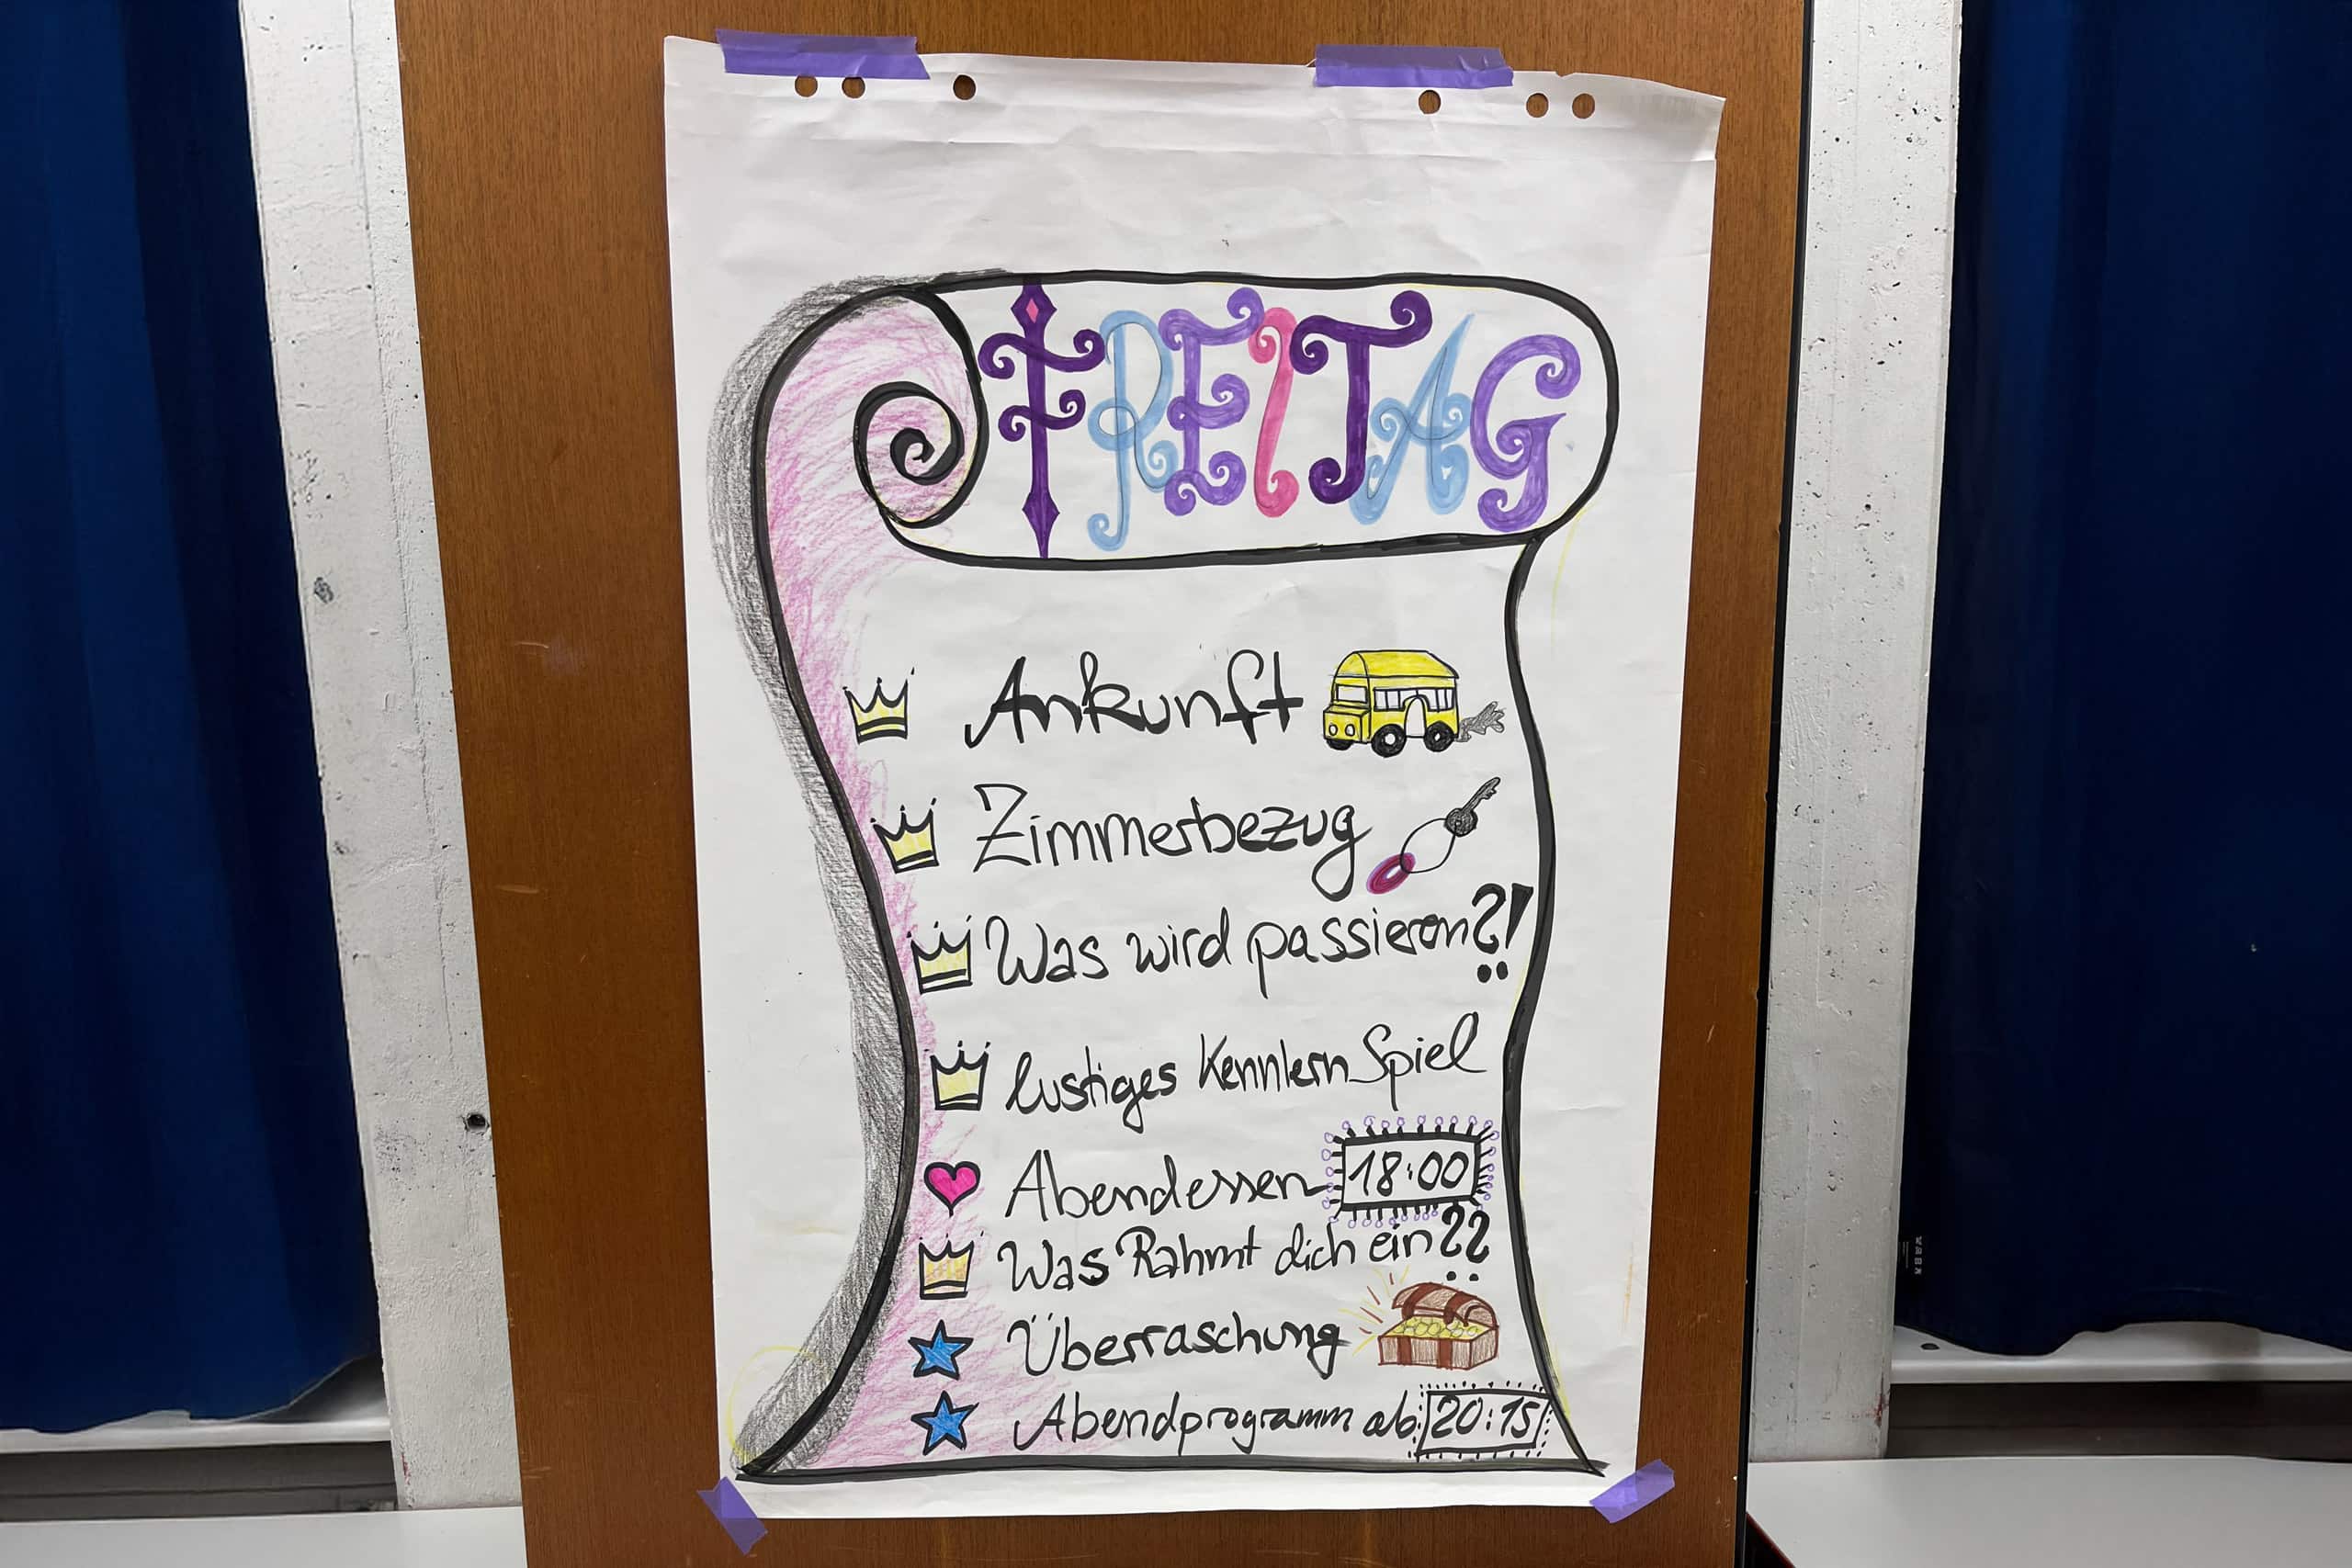 FREITAG
Ankunft
Zimmerbezug
Was wird passieren?!
lustiges Kennlern Spiel
Abendessen 18:00
Was Rahmt dich ein??
Überraschung
Abendprogramm ab 20:15